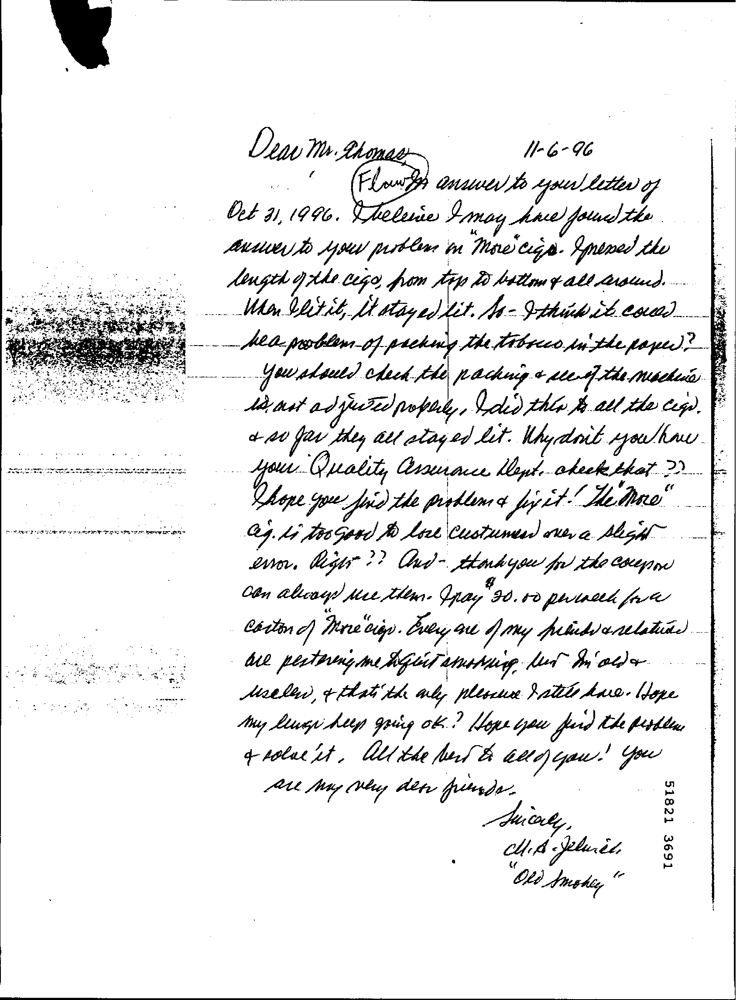 Dear Mr. Thomas, 11-6-96
Flaw In answer to your letter of
Oct 31, 1996. I beleive I may have found the
answer to your problem in "More" cigs. I pressed the
length of the cigs, from top to bottom & all around.
When I lit it, it stayed lit. So - I think it could
be a problem of packing the tobacco in the paper?
You should check the packing & see if the machine
is not adjusted properly. I did this to all the cigs.
& so far they all stayed lit. Why don't you have
your Quality Assurance Dept. check that ??
I hope you find the problem & fix it! The "More"
cig. is too good to lose customers over a slight
error. Right ?? And - thank you for the coupon
can always use them. I pay $20.00 per week for a
carton of "More" cigs. Every one of my friends & relatives
are pestering me to quit smoking, but I'm old &
useless, & that's the only pleasure I still have. Hope
my lungs keep going OK.? Hope you find the problem
& solve it. All the best to all of you! You
are my very dear friends.
Sincerely,
M. A.
"Old Smokey"
51821 3691